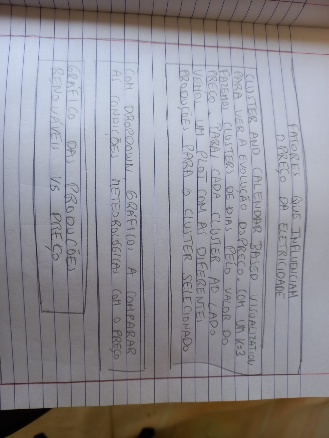 FATORES QUE INFLUENCIAM
O PREÇO DA ELETRICIDADE
CLUSTER AND CALENDAR BASED VISUALIZATION
PARA VER A EVOLUÇÃO DO PREÇO. COM UM K=3
FAZEMOS CLUSTERS DE DIAS PELO VALOR DO
PREÇO. PARA CADA CLUSTER AO LADO
VEMOS UM PLOT COM AS DIFERENTES
PRODUÇÕES PARA O CLUSTER SELECIONADO
COM DROPDOWN GRÁFICO A COMPARAR
AS CONDIÇÕES METEOROLÓGICAS COM O PREÇO
GRÁFICO DAS PRODUÇÕES
RENOVÁVEIS VS PREÇO